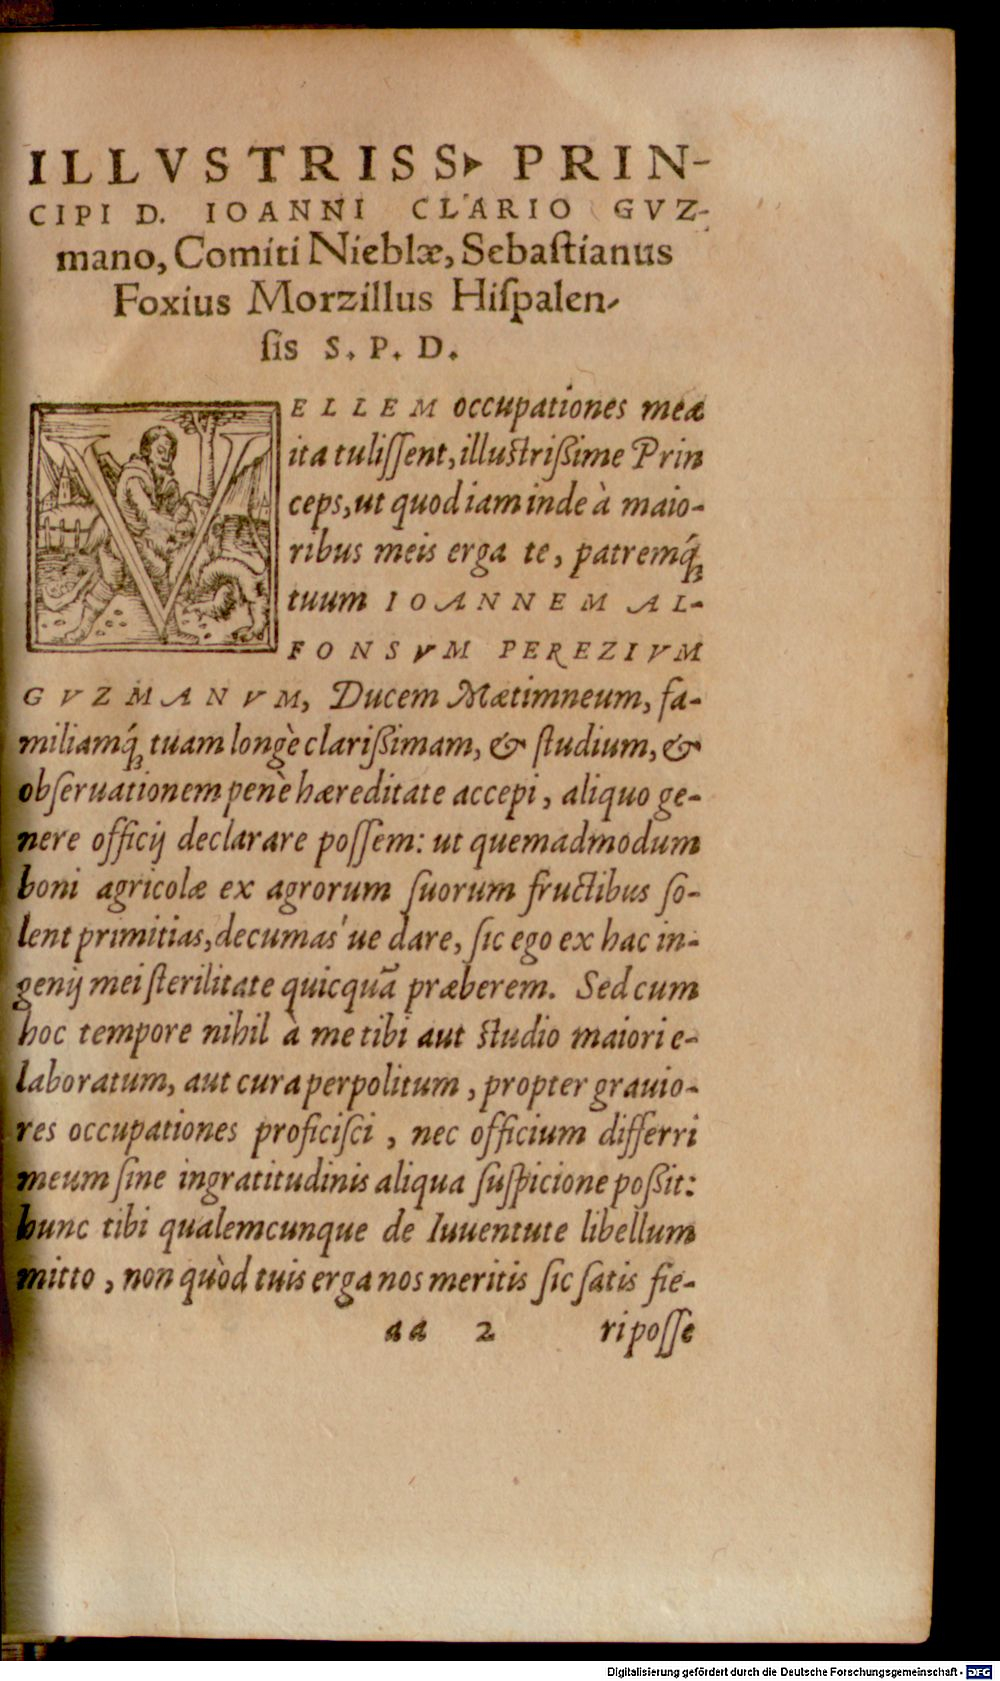 ILLVSTRISS. PRIN-
CIPI D. IOANNI CLARIO GVZ-
mano, Comiti Nieblæ, Sebaſtianus
Foxius Morzillus Hiſpalen-
ſis S. P. D.
VELLEM occupationes meæ
ita tuliſſent, illuſtrißime Prin
ceps, ut quod iam inde à maio-
ribus meis erga te, patremq́;
tuum IOANNEM AL-
FONSVM PEREZIVM
GVZMANVM, Ducem Mætimneum, fa-
miliamq́; tuam longè clarißimam, & ſtudium, &
obſeruationem penè hæreditate accepi, aliquo ge-
nere officij declarare poſſem: ut quemadmodum
boni agricolæ ex agrorum ſuorum fructibus ſo-
lent primitias, decumas'ue dare, ſic ego ex hac in-
genij mei ſterilitate quicquā præberem. Sed cum
hoc tempore nihil à me tibi aut ſtudio maiori e-
laboratum, aut cura perpolitum, propter grauio-
res occupationes proficiſci, nec officium differri
meum ſine ingratitudinis aliqua ſuſpicione poßit:
hunc tibi qualemcunque de Iuuentute libellum
mitto, non quòd tuis erga nos meritis ſic ſatis fie-
aa 2 ri poſſe
Digitalisierung gefördert durch die Deutsche Forschungsgemeinschaft - DFG